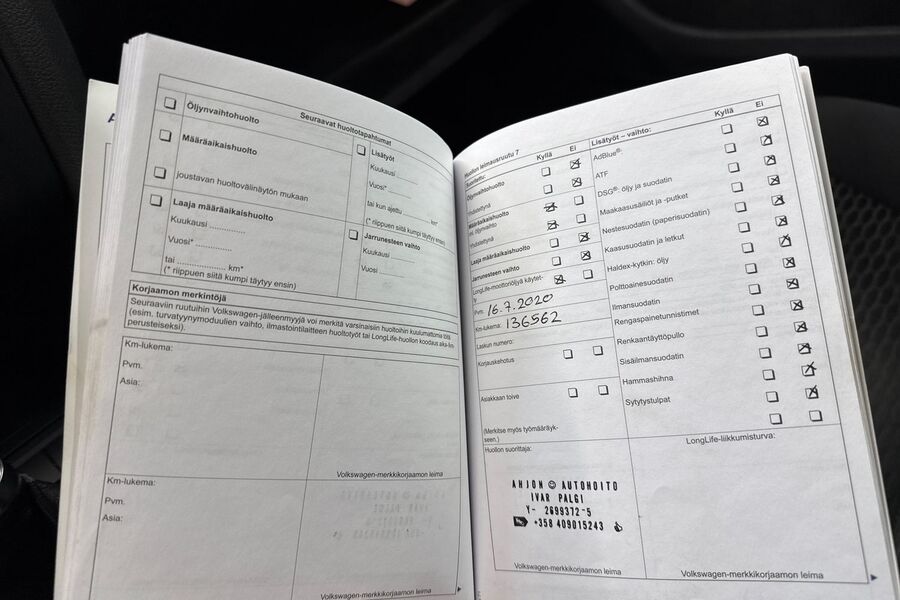 Seuraavat huoltotapahtumat
Öljynvaihtohuolto
Määräaikaishuolto
joustavan huoltovälinäytön mukaan
Laaja määräaikaishuolto
Kuukausi ..............
Vuosi* ..............
tai .................... km*
(* riippuen siitä kumpi täytyy ensin)
Lisätyöt
Kuukausi ............
Vuosi* ............
tai kun ajettu ............ km*
(* riippuen siitä kumpi täytyy ensin)
Jarrunesteen vaihto
Kuukausi ............
Vuosi ............
Korjaamon merkintöjä
Seuraaviin ruutuihin Volkswagen-jälleenmyyjä voi merkitä varsinaisiin huoltoihin kuulumattomia töitä
(esim. turvatyynymoduulien vaihto, ilmastointilaitteen huoltotyöt tai LongLife-huollon koodaus
perusteiseksi).
Km-lukema:
Pvm.
Asia:
Volkswagen-merkkikorjaamon leima
Km-lukema:
Pvm.
Asia:
Volkswagen-merkkikorjaamon leima
Huollon leimausruutu 7
Suoritettu:
Kyllä
Ei
Öljynvaihtohuolto
Yhdistettynä
Määräaikaishuolto
öljynvaihto
Yhdistettynä
Laaja määräaikaishuolto
Jarrunesteen vaihto
LongLife-moottoriöljyä käytet-
ty
Pvm. 16.7.2020
Km-lukema: 136562
Laskun numero:
Korjauskehotus
Asiakkaan toive
(Merkitse myös työmääräyk-
seen.)
Huollon suorittaja:
AHJON AUTOHOITO
IVAR PALGI
Y- 2699372-5
+358 409015243
Volkswagen-merkkikorjaamon leima
Lisätyöt – vaihto:
Kyllä
Ei
AdBlue®
ATF
DSG®- öljy ja suodatin
Maakaasusäiliöt ja -putket
Nestesuodatin (paperisuodatin)
Kaasusuodatin ja letkut
Haldex-kytkin: öljy
Polttoainesuodatin
Ilmansuodatin
Rengaspainetunnistimet
Renkaantäyttöpullo
Sisäilmansuodatin
Hammashihna
Sytytystulpat
LongLife-liikkumisturva:
Volkswagen-merkkikorjaamon leima